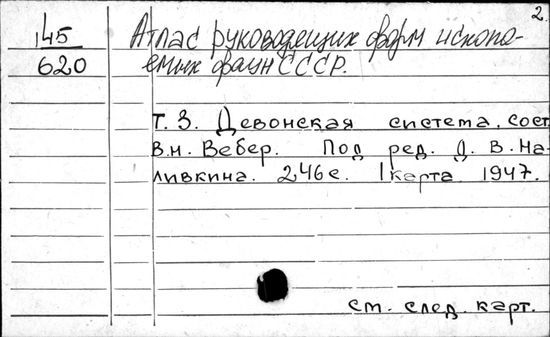 2
145
620
Атлас руководящих форм ископа-
емых фаун СССР.
Т. 3. Девонская система, сост.
В.Н. Вебер. Под ред. Д. В. На-
ливкина. 246с. 1 карта 1947.
см. след. карт.